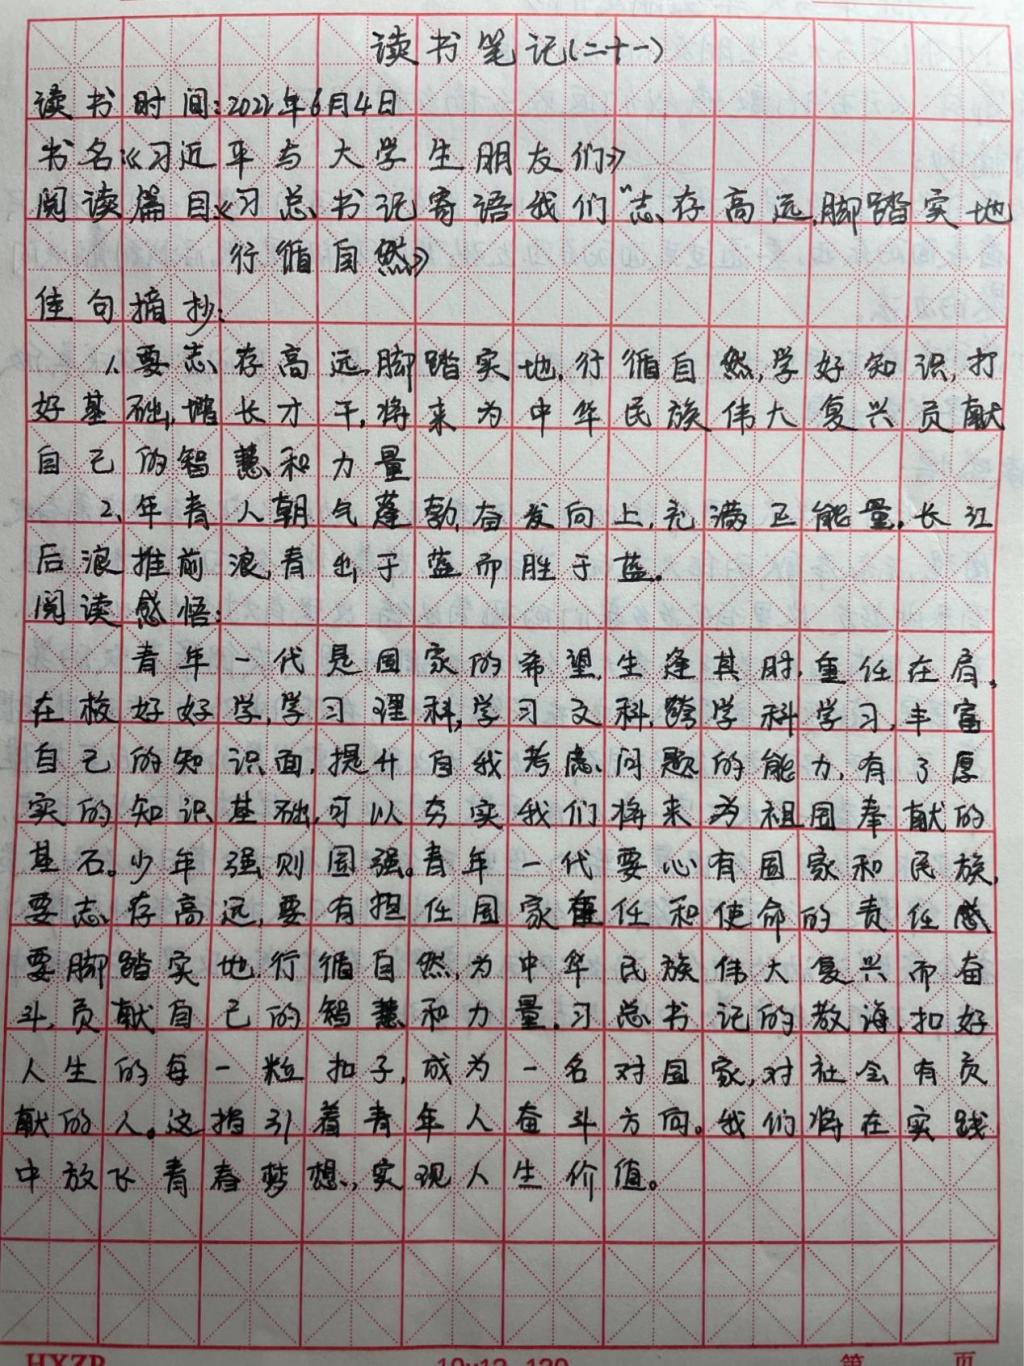 读书笔记(二十一)
读书时间:2022年6月4日
书名:《习近平与大学生朋友们》
阅读篇目《习总书记寄语我们“志存高远,脚踏实地
行循自然》
佳句摘抄:
1、要志存高远,脚踏实地,行循自然,学好知识,打
好基础,增长才干,将来为中华民族伟大复兴贡献
自己的智慧和力量
2、年青人朝气蓬勃,奋发向上,充满正能量。长江
后浪推前浪,青出于蓝而胜于蓝.
阅读感悟:
青年一代是国家的希望,生逢其时,重任在肩,
在校好好学,学习理科,学习文科,跨学科学习,丰富
自己的知识面,提升自我考虑问题的能力,有了厚
实的知识基础,可以夯实我们将来为祖国奉献的
基石。少年强则国强。青年一代要心有国家和民族,
要志存高远,要有担任国家重任和使命的责任感
要脚踏实地行循自然,为中华民族伟大复兴而奋
斗,贡献自己的智慧和力量.习总书记的教诲,扣好
人生的每一粒扣子,成为一名对国家,对社会有贡
献的人。这指引着青年人奋斗方向。我们将在实践
中放飞青春梦想,实现人生价值。
HXZP
第 页